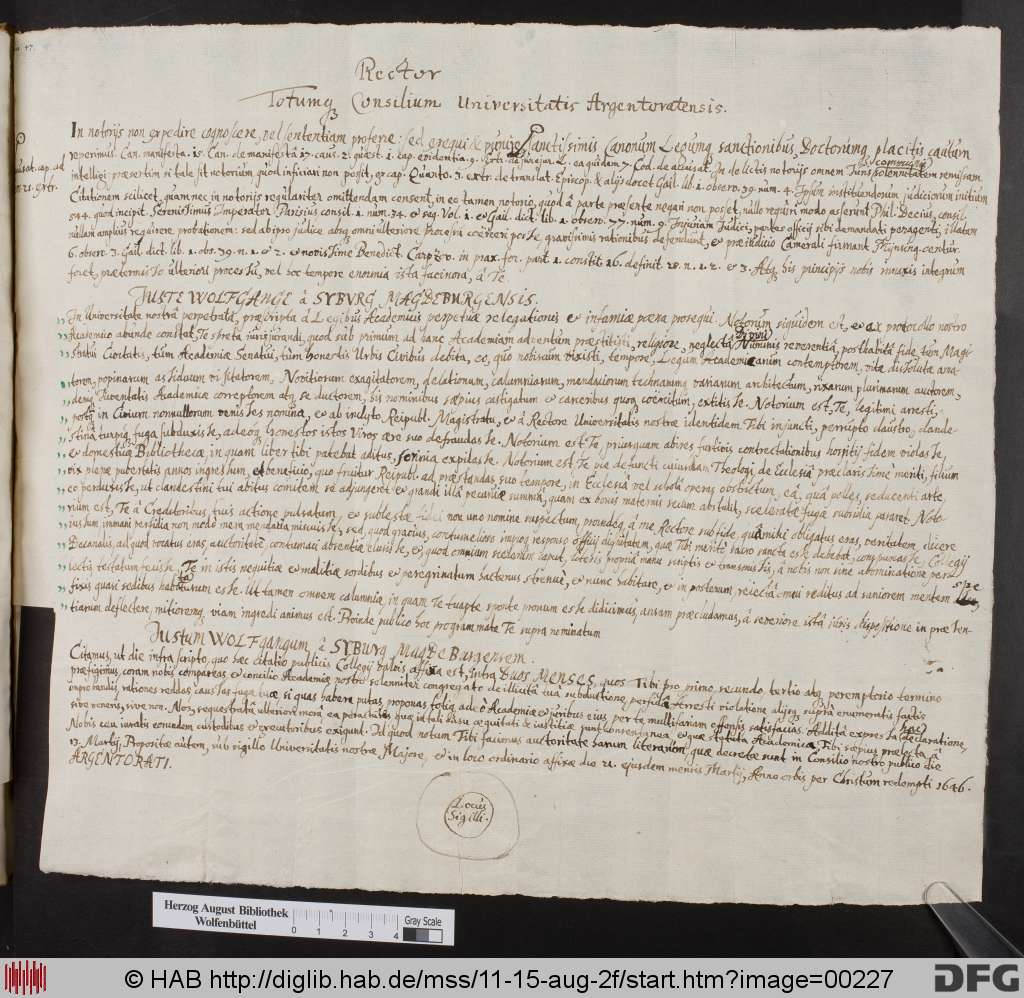 Rector
Totumq Consilium Universitatis Argentoratensis.
In notorijs non expedire cognoscere, vel sententiam proferre: sed exequi & punire sanctissimis Canonum Legumq sanctionibus, Doctorumq placitis cautum
reperimus. Can. manifesta. 15. Can. de manifesta 17. caus. 2. quæst. 1. cap. evidentia. 9. L. ea quidem 7. Cod. de accusat. In delictis notorijs omnem Juris solennitatem remissam
communiq
accusat. cap. ad
intelligi præsertim si tale sit notorium quod inficiari non possit, cap. Quanto. 3. extr. de translat. Episcop. & alijs docet Gail. lib. 1. observ. 39. num. 4. Ipsum instituendorum judiciorum initium
Citationem scilicet, quam nec in notorijs regulariter omittendam censent, in eo tamen notorio, quod à parte præsente negari non posset, nullo requiri modo asserunt Phil. Decius, consil.
544. quod incipit. Serenissimus Imperator Parisius consil. 1. num. 34. & seq. Vol. 1. & Gail. dict. lib. 1. observ. 77. num. 9. Injuriam Judici, partes officij sibi demandati peragenti, illatam
nullam amplius requirere probationem: sed ab ipso judice absq omni ulteriore Processu coërceri posse gravissimis rationibus defendunt, & præjudicio Camerali firmant Mynsing. centur.
6. observ. 3. Gail. dict. lib. 1. obs. 39. n. 1. & 2. & novissime Benedict. Carpzov. in prax. for. part. 1. constit. 16. definit. 28. n. 1. 2. & 3. Atq his principijs nobis innixis integrum
foret, prætermisso ulteriori processu, vel hoc tempore enormia ista facinora, à Te.
JUSTE WOLFGANGE à SYBURG, MAGDEBURGENSIS.
In Universitate nostra perpetrata, præscripta à Legibus Academicis perpetuæ relegationis & infamiæ pœna prosequi. Notorum siquidem est, & ex protocollo nostro
Academico abunde constat, Te spreta jurisjurandi, quod sub primum ad hanc Academiam adventum præstitisti, religione, neglecta Divini Numinis reverentia, posthabita fide tum Magi-
stratui Civitatis, tum Academiæ Senatui, tum honestis Urbis Civibus debita, eo, quo nobiscum vixisti, tempore, Legum Academicarum contemptorem, vitæ dissolutæ ama-
torem, popinarum assiduum visitatorem, Novitiorum exagitatorem, delationum, calumniarum, mendaciorum technarumq variarum architectum, rixarum plurimarum auctorem,
deniq Juventatis Academicæ correptorem atq seductorem, bis nominibus sæpius castigatum & carceribus quoq coërcitum, extitisse. Notorium est, Te, legitimi arresti,
postq in Civium nonnullorum venisses nomina, & ab inclyto Reipubl. Magistratu, & à Rectore Universitatis nostræ identidem Tibi injuncti, perrupto claustro, clande-
stina turpiq fuga subduxisse, adeoq honestos istos Viros ære suo defraudasse. Notorium est Te, priusquam abires furtivis contrectationibus hospitij fidem violasse,
& domesticæ Bibliothecæ, in quam liber tibi patebat aditus, scrinia expilasse. Notorium est, Te pie defuncti cujusdam Theologi de Ecclesia præclarissime meriti, filium
vix plenæ pubertatis annos ingressum, & beneficio, quo fruitur Reipubl. ad præstandas suo tempore, in Ecclesia vel schola operas obstrictum, ea, qua polles, seducendi arte,
eo perduxisse, ut clandestini tui abitus comitem se adjungeret & grandi illa pecuniæ summa, quam ex bonis maternis secum abstulit, sceleratæ fugæ subsidia pararet. Noto-
rium est, Te à Creditoribus tuis actione pulsatum, & sublestæ fidei non uno nomine suspectum, proindeq à me Rectore sub fide, qua mihi obligatus eras, veritatem dicere
jussum immani perfidia non modo mera mendacia miscuisse, sed, quod gravius, contumelioso improq responso officij dignitatem, quæ Tibi merito sacro sancta esse debebat, conspuasse, Collegij
Decanalis, ad quod vocatus eras, auctoritatem contumaci absentia elusisse, &, quod omnium scelerum caput, literis propria manu scriptis & transmissis, à nobis non sine abominatione per-
lectis testatum fecisse, Te in istis nequitiæ & malitiæ sordibus & peregrinatum hactenus strenue, & nunc habitare, & in posterum rejecta omni reditus ad saniorem mentem spe
fixis quasi sedibus habitaturum esse. Ut tamen omnem calumniæ, in quam Te tuapte sponte pronum esse didicimus, ansam præcludamus, à severiore ista juris dispositione in præsen-
tiarum deflectere, mitioremq viam ingredi animus est. Proinde publico hoc programmate Te supra nominatum
Justum WOLFgangum à SYBURG MagdeBurgensem.
Citamus, ut die infra scripto, quo hæc citatio publicis Collegij valvis affixa est, intra DUOS MENSES, quos Tibi pro primo, secundo, tertio atq peremptorio termino
præfigimus, coram nobis compareas & concilio Academiæ nostro solenniter congregato de illicita tua subductione, perfida Arresti violatione alijsq supra enumeratis factis
improbandis, rationes reddas, causas fugæ tuæ si quas habere putas, proponas, totiq adeo Academiæ & juribus ejus per te multifariam offensis satisfacias. Addita expressa declaratione,
sive veneris, sive non. Nos, sequestrata ulteriori mora ea peracturos quæ in tali casu æquitati & justitiæ sunt consentanea & quæ statuta Academica Tibi sæpius prælecta à
Nobis ceu juratis eorundem custodibus & executoribus exigunt. Id quod notum Tibi facimus auctoritate harum literarum quæ decretæ sunt in Consilio nostro publico die
13. Martij. Propositæ autem, sub sigillo Universitatis nostræ Majore, & in loco ordinario affixæ die 21. ejusdem mensis Martij, Anno orbis per Christum redempti 1646.
ARGENTORATI.
Locus
Sigilli.
Herzog August Bibliothek
Wolfenbüttel
0 1 2 3 4
Gray Scale
© HAB http://diglib.hab.de/mss/11-15-aug-2f/start.htm?image=00227
DFG